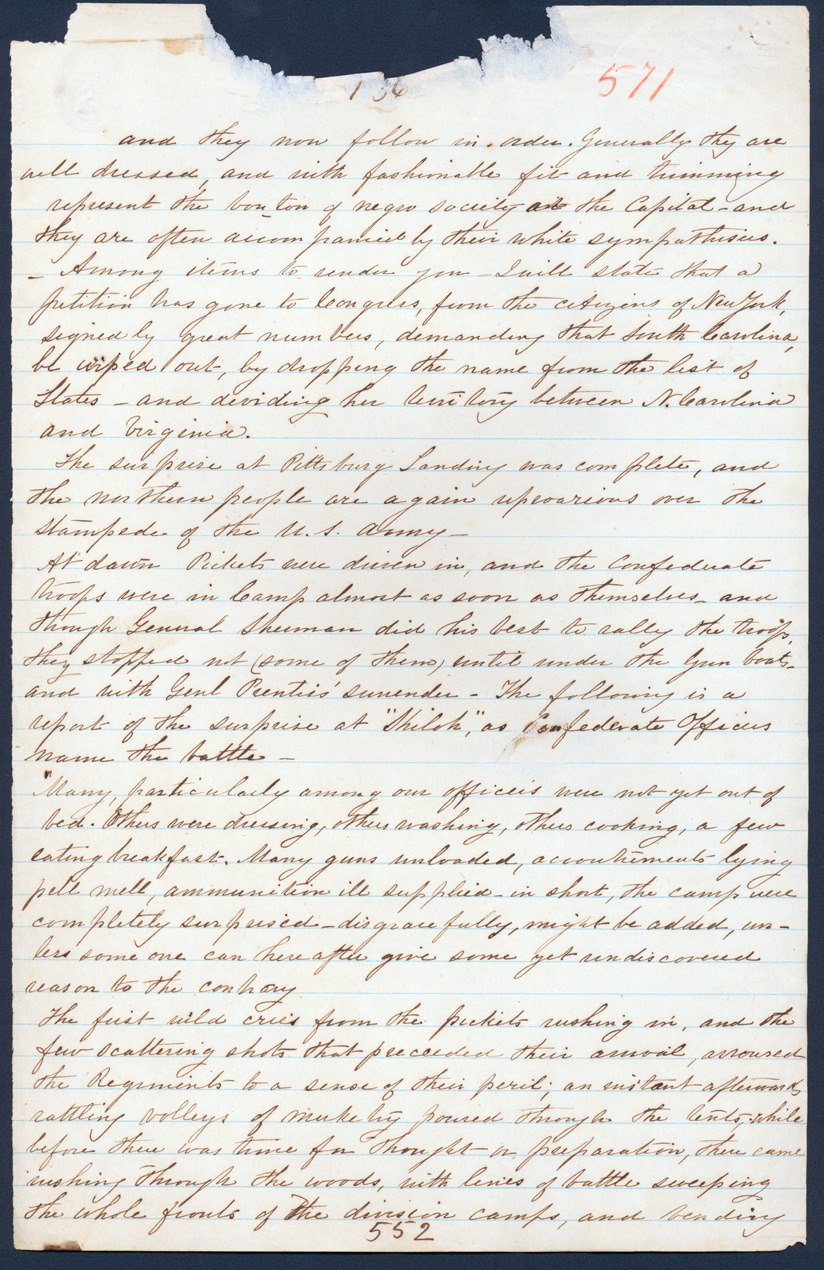 136
571
and they now follow in order. Generally they are
well dressed, and with fashionable fit and trimming
represent the bon ton of negro society at the Capital - and
they are often accompanied by their white sympathisers.
- Among items to render you - I will state that a
petition has gone to Congress, from the citizens of New York,
signed by great numbers, demanding that South Carolina,
be wiped out, by dropping the name from the list of
States - and dividing her territory between N. Carolina
and Virginia.
The surprise at Pittsburg Landing was complete, and
the northern people are again uproarious over the
stampede of the U.S. Army -
At dawn Pickets were driven in, and the Confederate
troops were in Camp almost as soon as themselves - and
though General Sherman did his best to rally the troops,
they stopped not (some of them) until under the Gun boats -
and with Genl Prentiss surrender - The following is a
report of the surprise at "Shiloh," as Confederate Officers
name the battle -
"Many, particularly among our officers were not yet out of
bed. Others were dressing, others washing, others cooking, a few
eating breakfast. Many guns unloaded, accoutrements lying
pell mell, ammunition ill supplied - in short, the camp were
completely surprised - disgracefully, might be added, un-
less some one can hereafter give some yet undiscovered
reason to the contrary
The first wild cries from the pickets rushing in, and the
few scattering shots that preceeded their arrival, arroused
the Regiments to a sense of their peril; an instant afterwards
rattling volleys of musketry poured through the tents, while
before there was time for thought or preparation, there came
rushing through the woods, with lines of battle sweeping
the whole fronts of the division camps, and bending
552